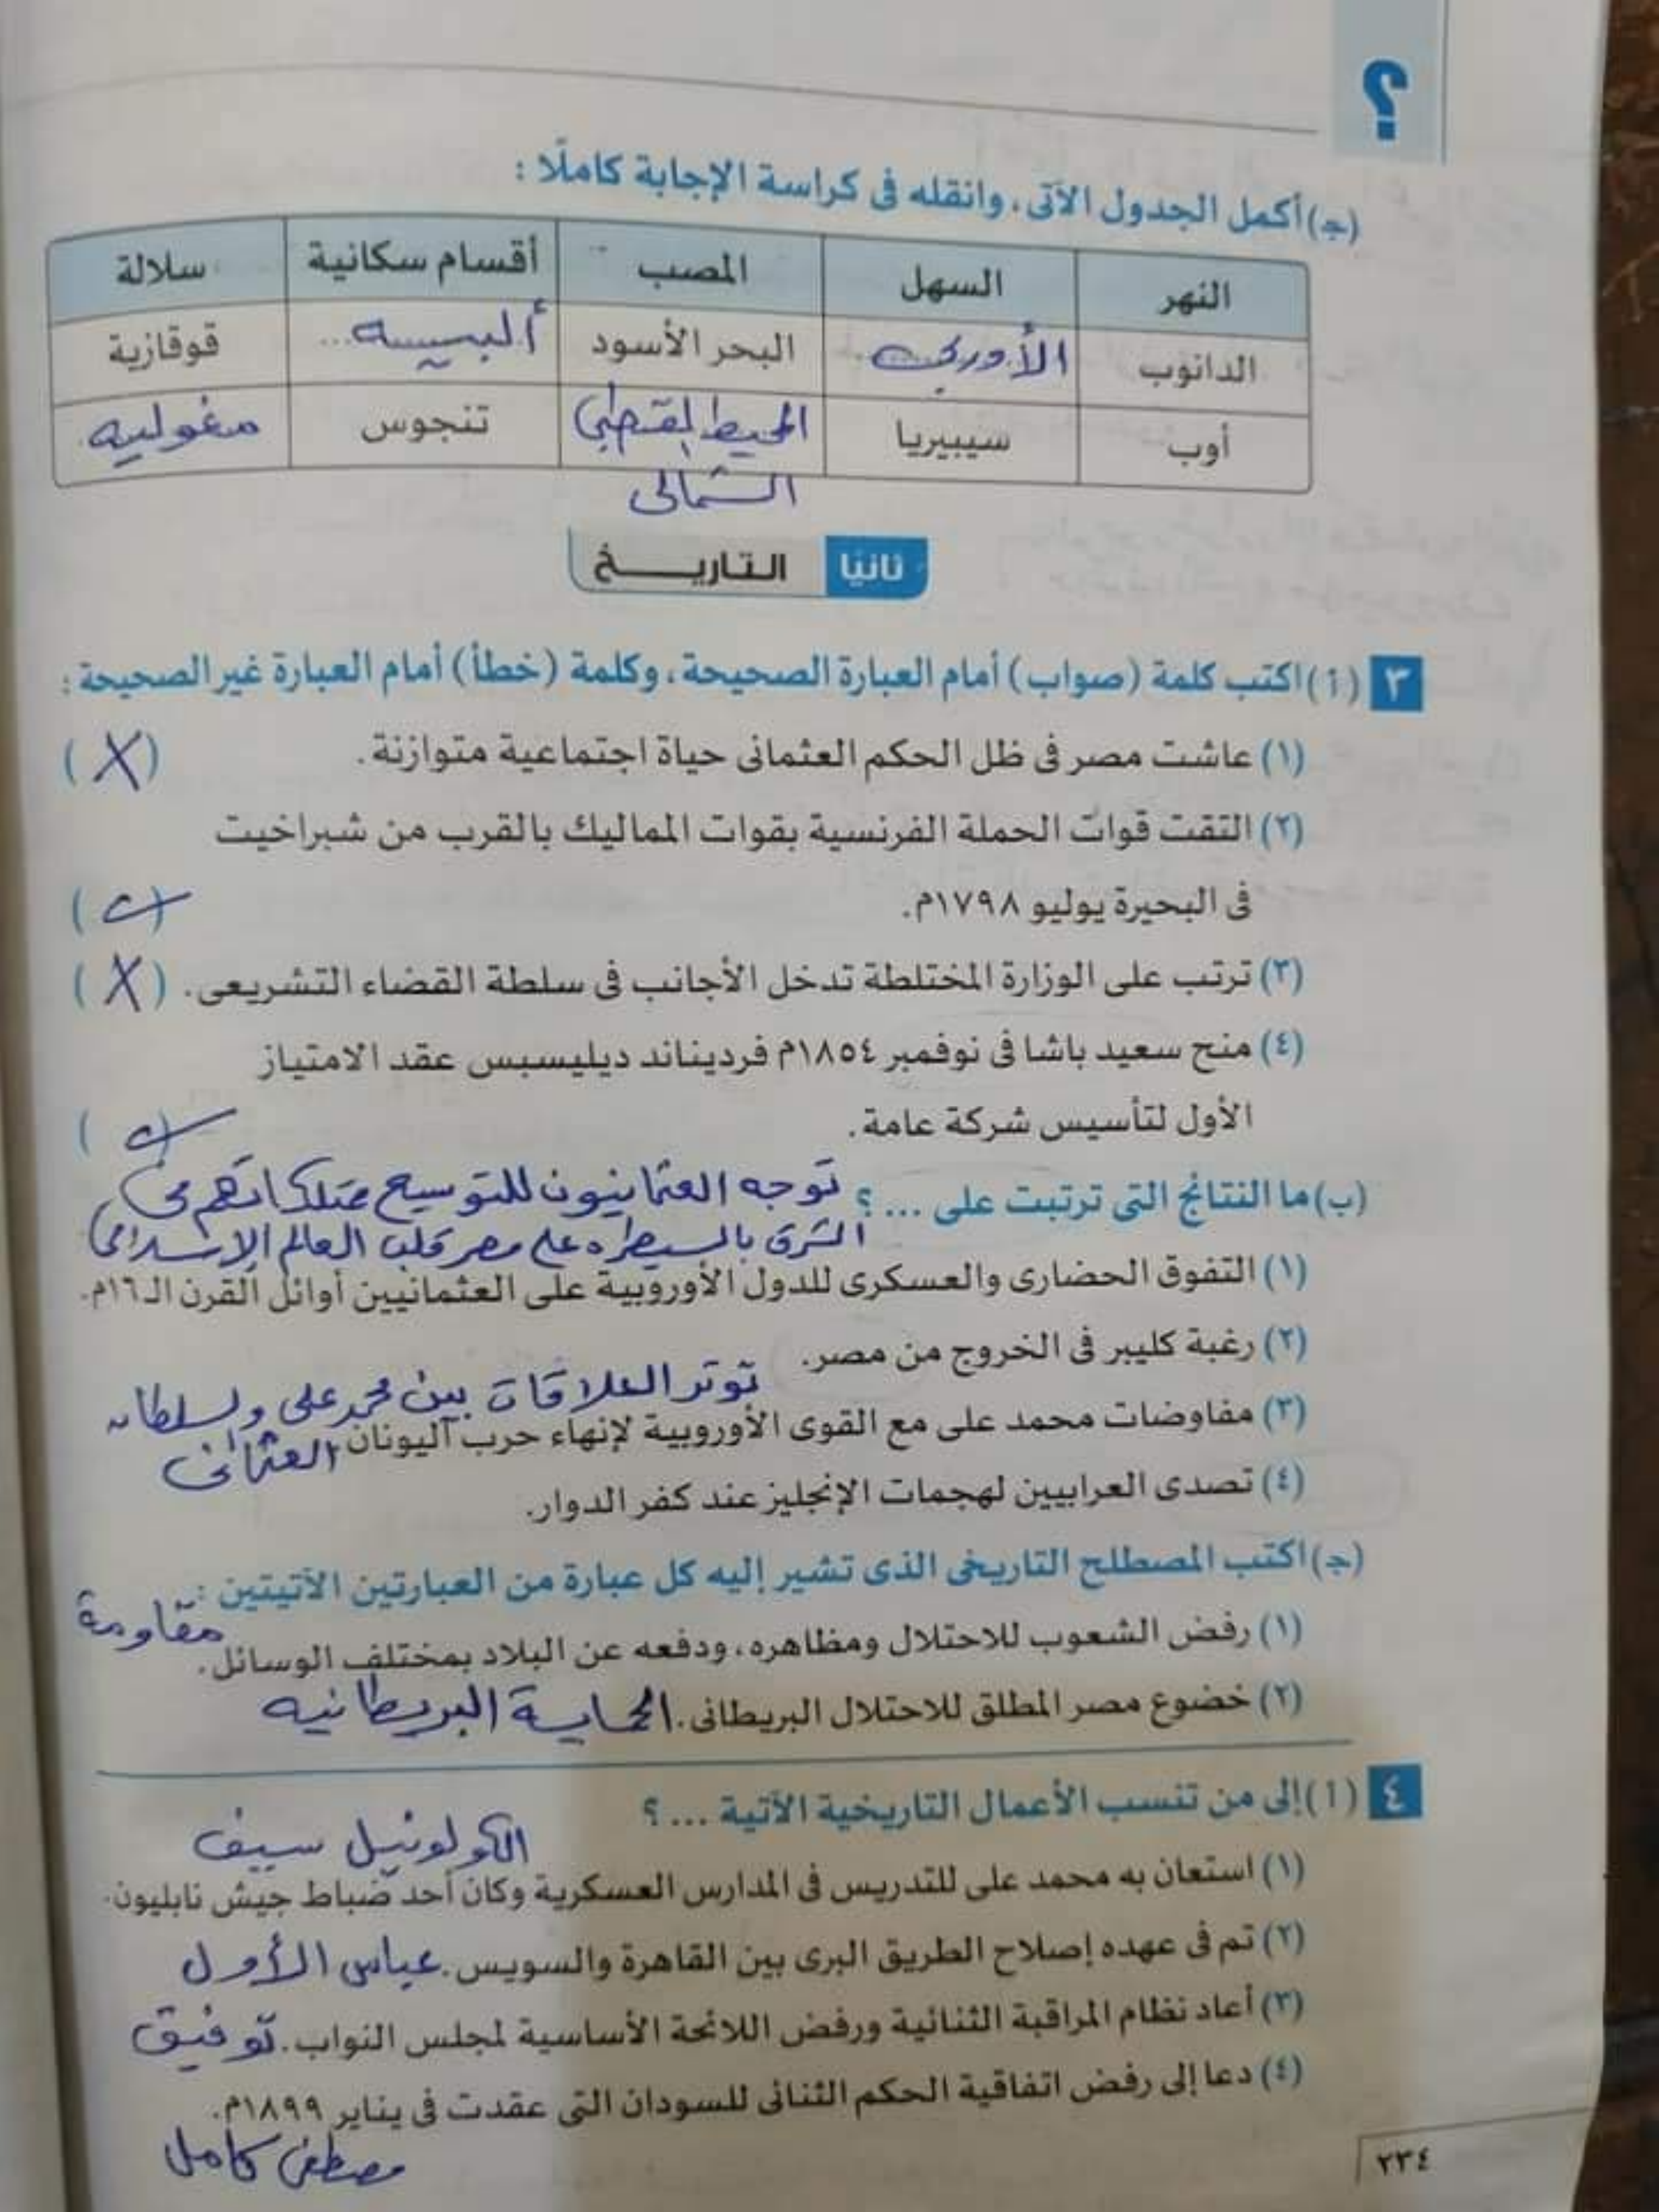 ؟
(جـ) أكمل الجدول الآتى، وانقله فى كراسة الإجابة كاملًا :
النهر السهل المصب أقسام سكانية سلالة
الدانوب الأوربى البحر الأسود ألبيسه قوقازية
أوب سيبيريا المحيط القطبى تنجوس مغوليه
الشمالى
ثانيًا التاريــخ
٣ (أ) اكتب كلمة (صواب) أمام العبارة الصحيحة، وكلمة (خطأ) أمام العبارة غير الصحيحة :
(١) عاشت مصر فى ظل الحكم العثمانى حياة اجتماعية متوازنة. (X)
(٢) التقت قوات الحملة الفرنسية بقوات المماليك بالقرب من شبراخيت
فى البحيرة يوليو ١٧٩٨م. ( )
(٣) ترتب على الوزارة المختلطة تدخل الأجانب فى سلطة القضاء التشريعى. (X)
(٤) منح سعيد باشا فى نوفمبر ١٨٥٤م فرديناند ديليسبس عقد الامتياز
الأول لتأسيس شركة عامة. ( )
(ب) ما النتائج التى ترتبت على ... ؟ توجه العثمانيون للتوسيع ممتلكاتهم فى
الشرق بالسيطره على مصر قلب العالم الإسلامى
(١) التفوق الحضارى والعسكرى للدول الأوروبية على العثمانيين أوائل القرن الـ١٦م.
(٢) رغبة كليبر فى الخروج من مصر.
توتر العلاقات بين محمد على والسلطان
(٣) مفاوضات محمد على مع القوى الأوروبية لإنهاء حرب اليونان. العثمانى
(٤) تصدى العرابيين لهجمات الإنجليز عند كفر الدوار.
(جـ) اكتب المصطلح التاريخى الذى تشير إليه كل عبارة من العبارتين الآتيتين :
(١) رفض الشعوب للاحتلال ومظاهره، ودفعه عن البلاد بمختلف الوسائل. مقاومة
(٢) خضوع مصر المطلق للاحتلال البريطانى. الحماية البريطانيه
٤ (أ) إلى من تنسب الأعمال التاريخية الآتية ... ؟
الكولونيل سيف
(١) استعان به محمد على للتدريس فى المدارس العسكرية وكان أحد ضباط جيش نابليون.
(٢) تم فى عهده إصلاح الطريق البرى بين القاهرة والسويس. عباس الأول
(٣) أعاد نظام المراقبة الثنائية ورفض اللائحة الأساسية لمجلس النواب. توفيق
(٤) دعا إلى رفض اتفاقية الحكم الثنائى للسودان التى عقدت فى يناير ١٨٩٩م.
مصطفى كامل
٢٣٤